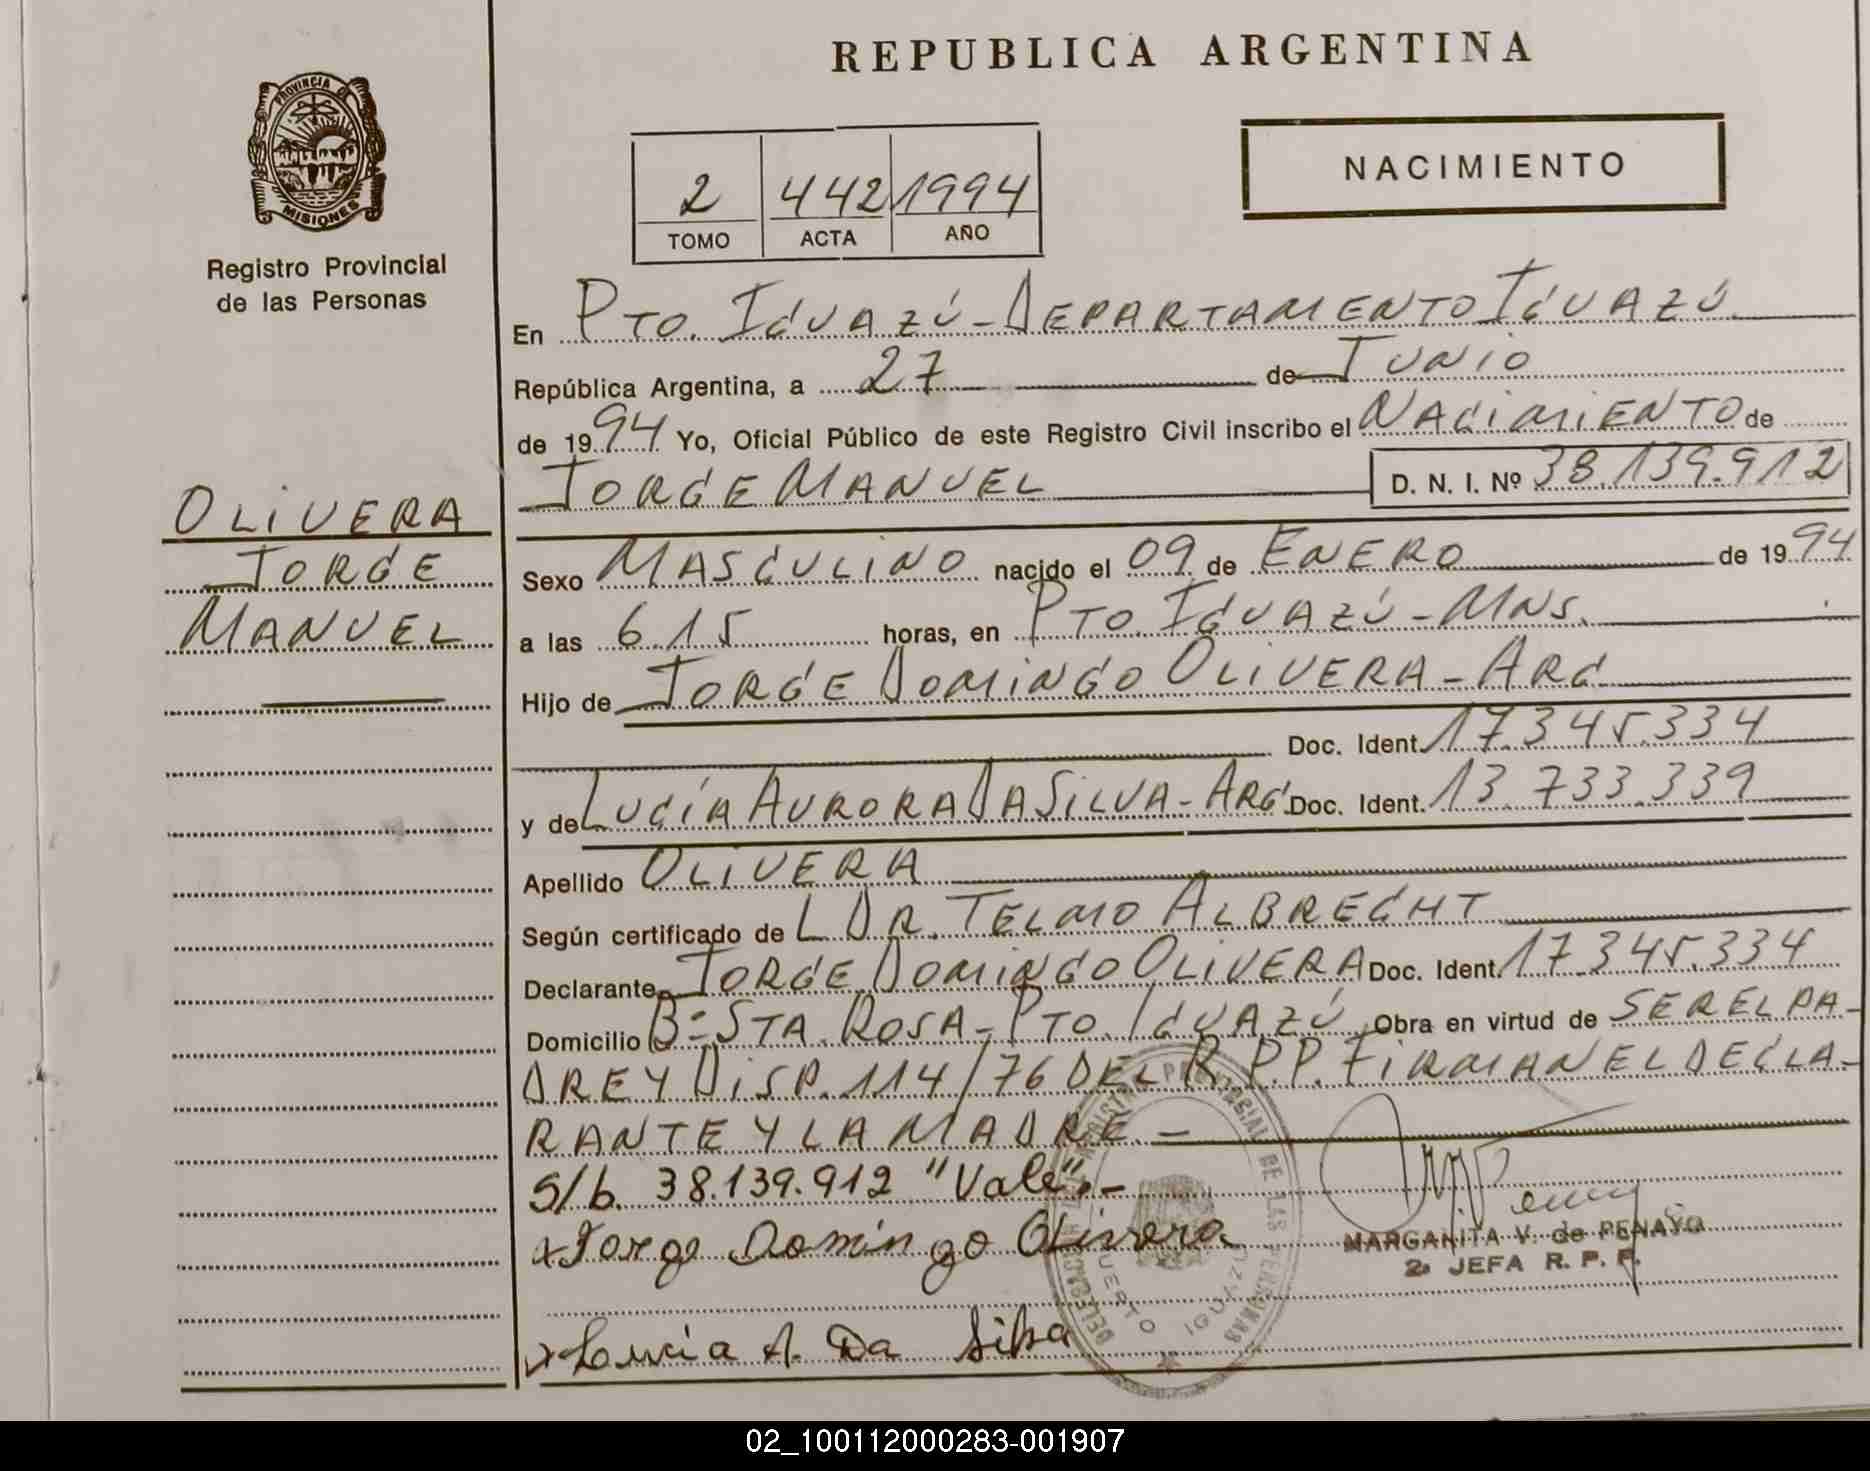 REPUBLICA ARGENTINA
PROVINCIA DE
MISIONES
Registro Provincial
de las Personas
NACIMIENTO
2 442 1994
TOMO ACTA AÑO
En PTO. IGUAZÚ - DEPARTAMENTO IGUAZÚ
República Argentina, a 27 de JUNIO
de 1994 Yo, Oficial Público de este Registro Civil inscribo el NACIMIENTO de
JORGE MANUEL D. N. I. Nº 38.139.912
OLIVERA
JORGE
MANUEL
Sexo MASCULINO nacido el 09 de ENERO de 1994
a las 6.15 horas, en PTO. IGUAZÚ - MNS.
Hijo de JORGE DOMINGO OLIVERA - ARG
Doc. Ident. 17.345.334
y de LUCÍA AURORA DA SILVA - ARG. Doc. Ident. 13.733.339
Apellido OLIVERA
Según certificado de L DR. TELMO ALBRECHT
Declarante JORGE DOMINGO OLIVERA Doc. Ident. 17.345.334
Domicilio Bº STA. ROSA - PTO. IGUAZÚ Obra en virtud de SER EL PA-
DRE Y DISP. 114/76 DEL R.P.P. FIRMAN EL DECLA-
RANTE Y LA MADRE. -
S/b. 38.139.912 "Vale". -
x Jorge Domingo Olivera
MARGARITA V. de PENAYO
2ª JEFA R. P. P.
x Lucia A. Da Silva
PUERTO IGUAZU
02_100112000283-001907